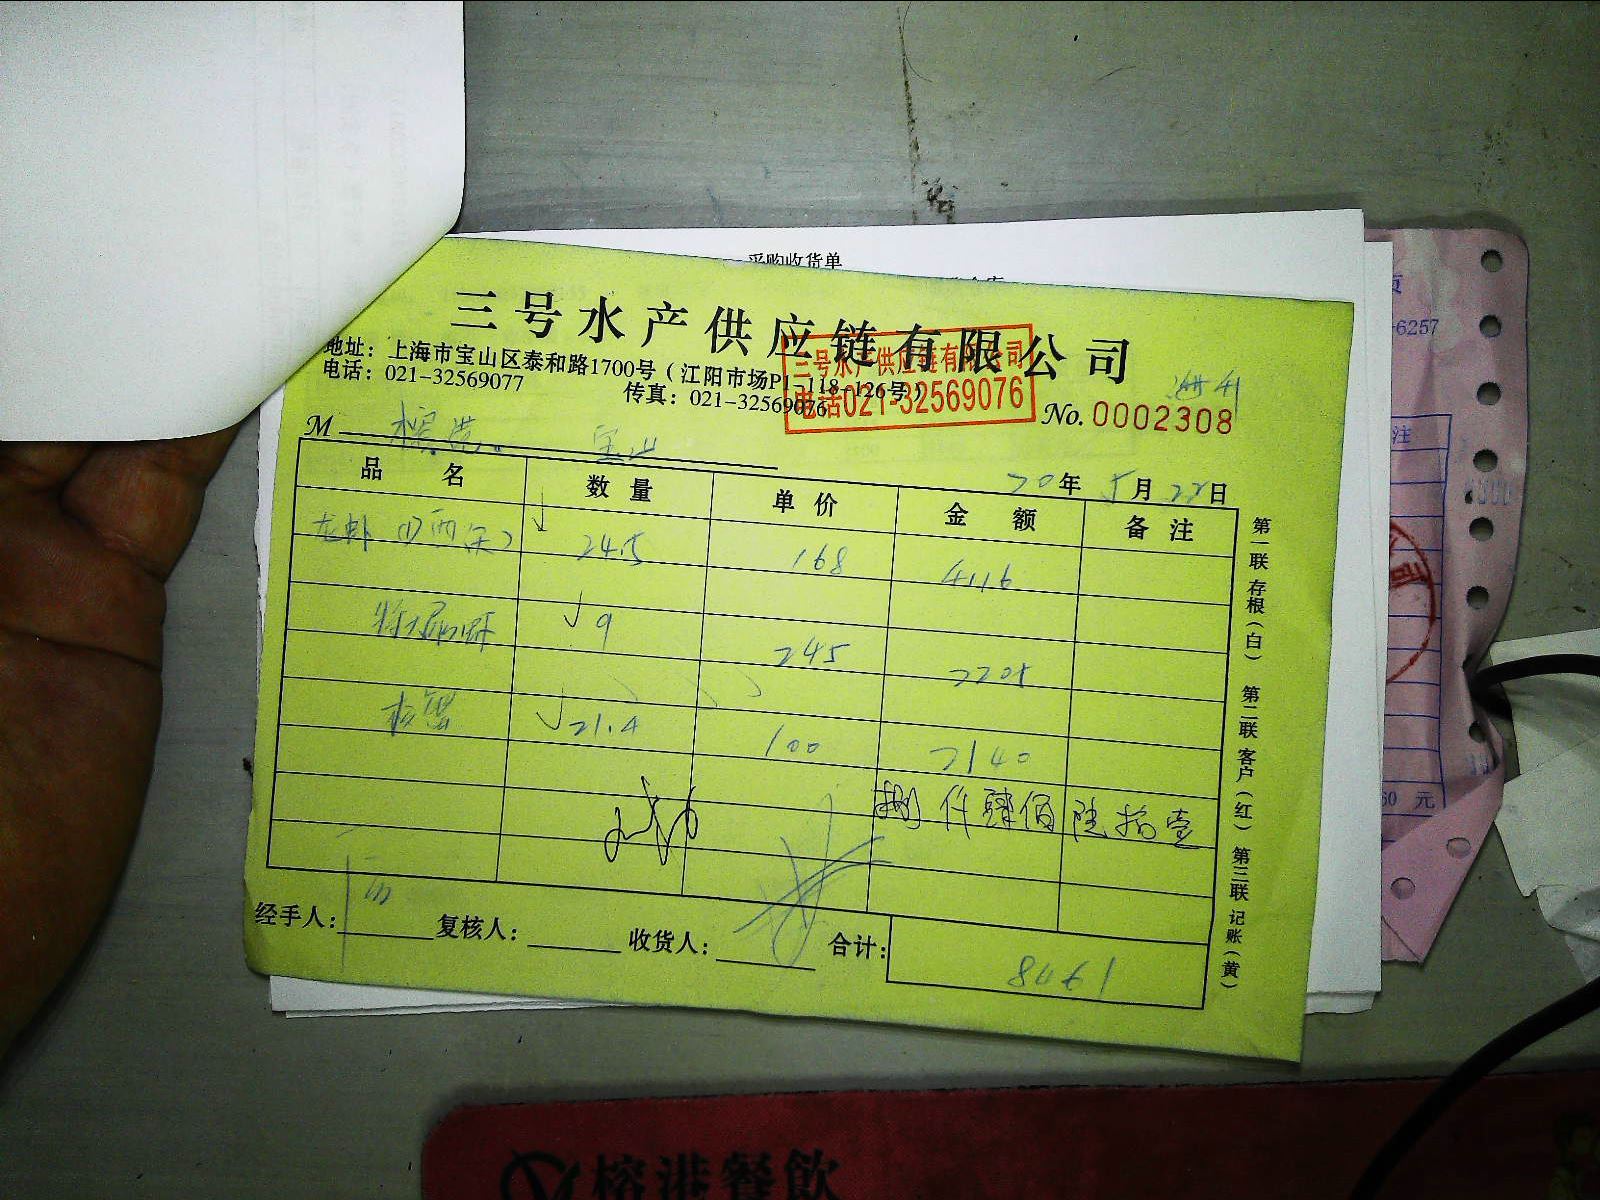 采购收货单
三号水产供应链有限公司
地址：上海市宝山区泰和路1700号（江阳市场P1-118-126号）
电话：021-32569077 传真：021-32569076
三号水产供应链有限公司
电话021-32569076
No. 0002308
M 榕港 宝山
20年 5月 22日
品 名 数 量 单 价 金 额 备 注
龙虾 24.5 168 4116
9 245 2205
21.4 100 2140
捌仟肆佰陆拾壹
经手人： 复核人： 收货人： 合计： 8461
第一联 存根（白） 第二联 客户（红） 第三联 记账（黄）
-6257
注
60 元
榕港餐飲